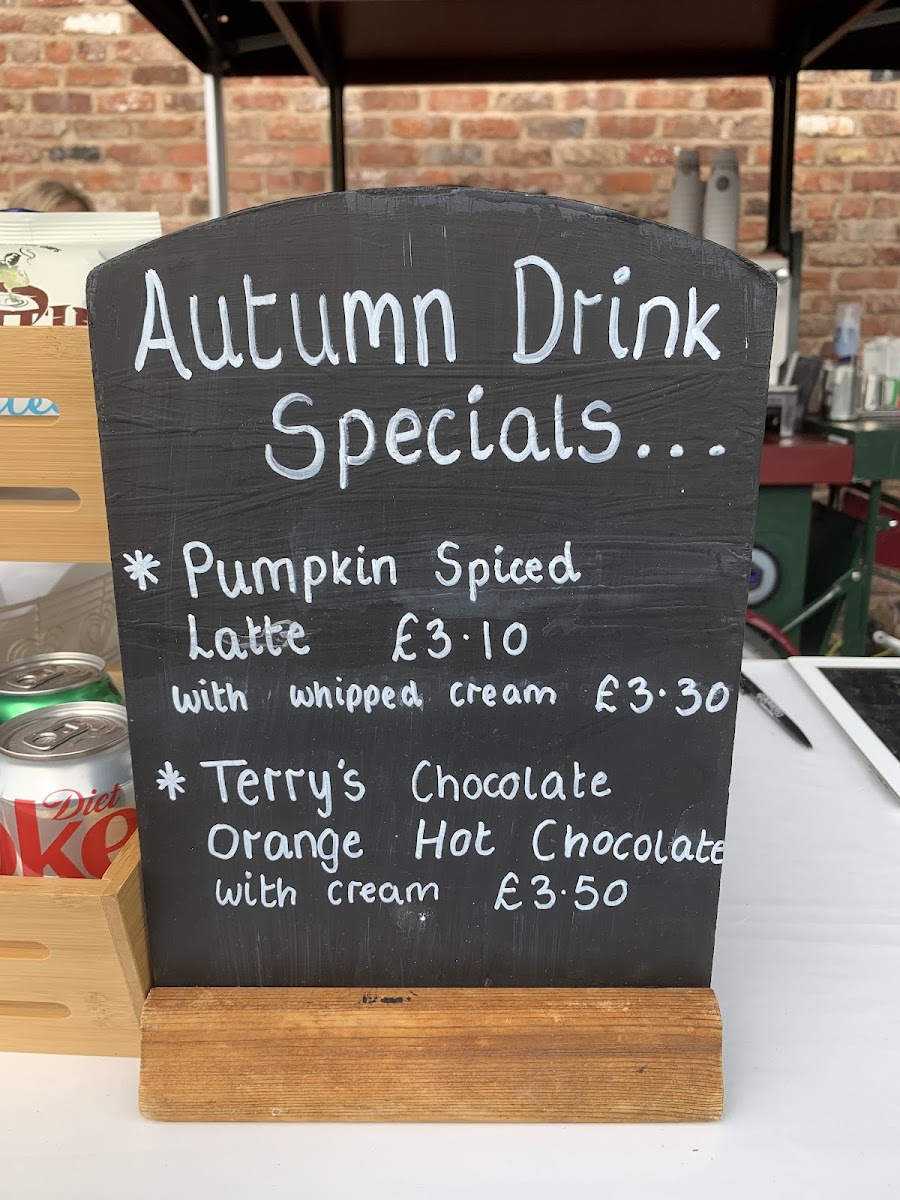 Autumn Drink
Specials...
* Pumpkin Spiced
Latte £3.10
with whipped cream £3.30
* Terry's Chocolate
Orange Hot Chocolate
with cream £3.50
Diet